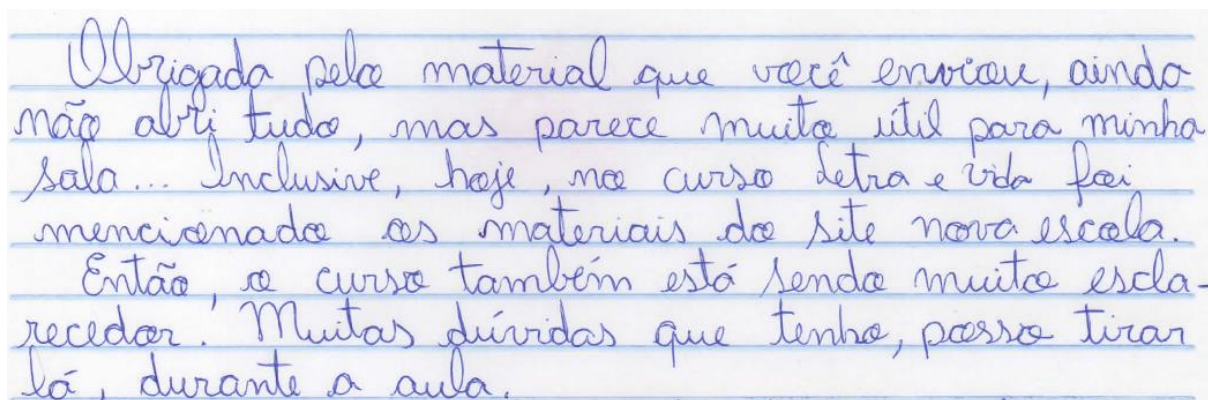 Obrigada pelo material que você enviou, ainda
não abri tudo, mas parece muito útil para minha
sala... Inclusive, hoje, no curso Letra e Vida foi
mencionado os materiais do site nova escola.
Então, o curso também está sendo muito escla-
recedor. Muitas dúvidas que tenho, posso tirar
lá, durante a aula.